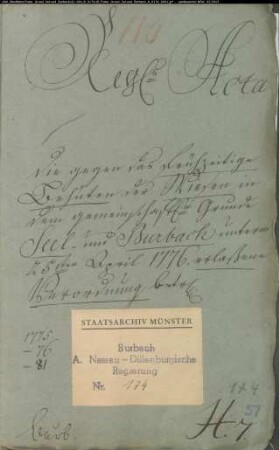 Regs Acta
Die gegen das frühzeitige
Behüten der Wiesen in
dem gemeinschaftl. Grunde
Seel- und Burbach unterm
25ten April 1776. erlassene
Verordnung betr.
1775
- 76
- 81
STAATSARCHIV MÜNSTER
Burbach
A. Nassau-Dillenburgische
Regierung
Nr. 174
174
51
Burb.
H. 7